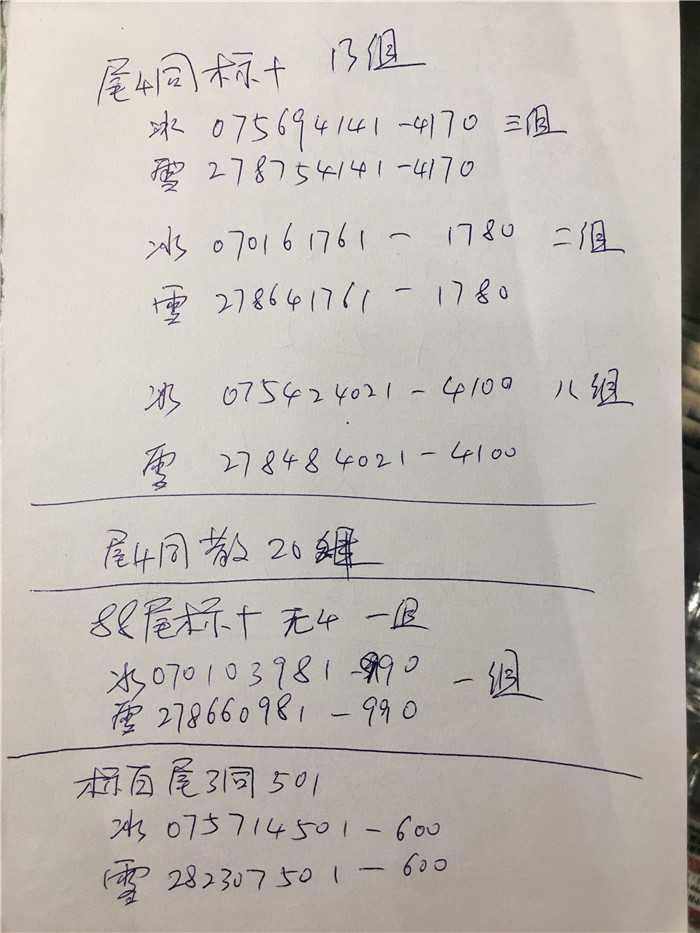 尾4同标十 13组
冰 075694141-4170 三组
雪 278754141-4170
冰 070161761-1780 二组
雪 278641761-1780
冰 075424021-4100 八组
雪 278484021-4100
尾4同 散 20
88尾标十 无4 一组
冰070103981-990 一组
雪278660981-990
标百尾3同501
冰 075714501-600
雪 282307501-600